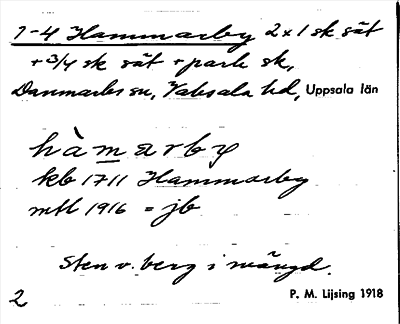 1-4 Hammarby 2 x 1 sk sät
+ 3/4 sk sät + park sk,
Danmarks sn, Vaksala hd, Uppsala län
hàmarby
kb 1711 Hammarby
mtl 1916 = jb
Sten o. berg i mängd.
2
P. M. Lijsing 1918